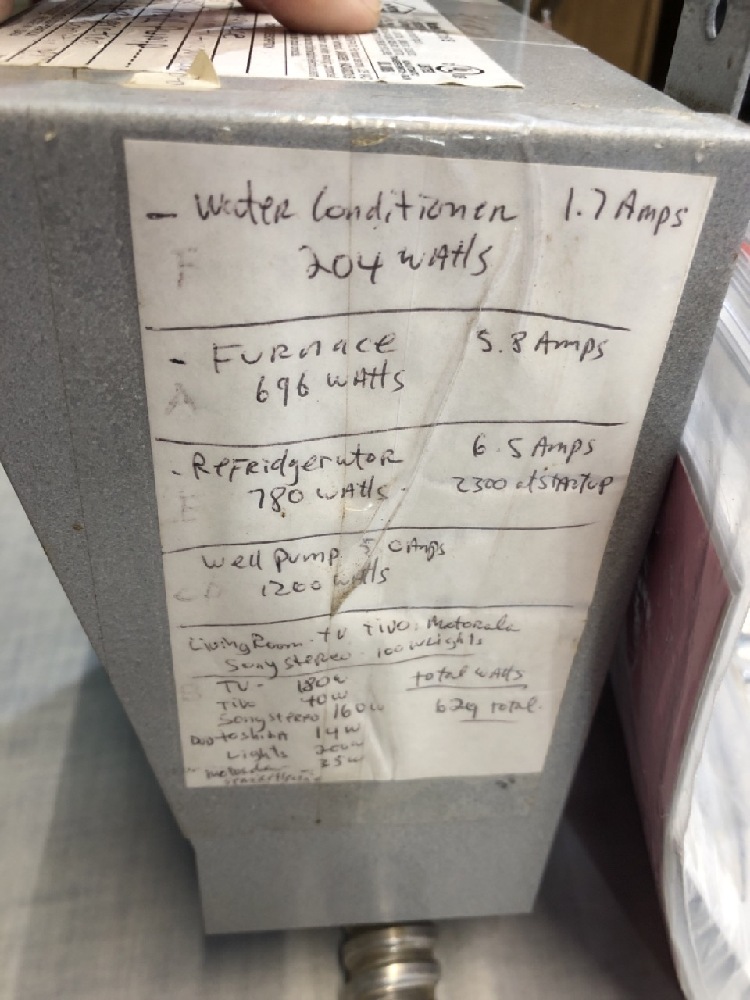 - Water Conditioner 1.7 Amps
F 204 Watts
- Furnace 5.8 Amps
A 696 Watts
- Refridgerator 6.5 Amps
E 780 Watts 2300 at Startup
Well Pump 5 0 Amps
C D 1200 Watts
Living Room - TV TIVO, Motorala
Sony Stereo - 100 W Lights
TV - 180w total watts
B Tivo 40w 629 total
Sony Stereo 160w
Toshiba 14w
Lights 200w
35w